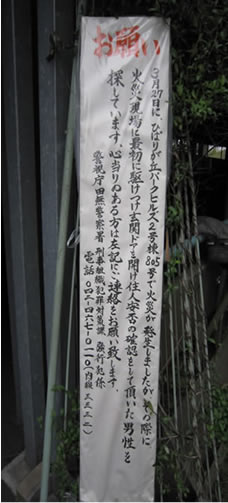 お願い
3月27日に、ひばりが丘パークヒルズ2号棟805号で火災が発生しましたが、その際に
火災現場に最初に駆けつけ玄関ドアを開け住人安否の確認をして頂いた男性を
探しています。心当りのある方は左記にご連絡をお願い致します。
警視庁田無警察署 刑事組織犯罪対策課 強行犯係
電話 042-467-0110(内線